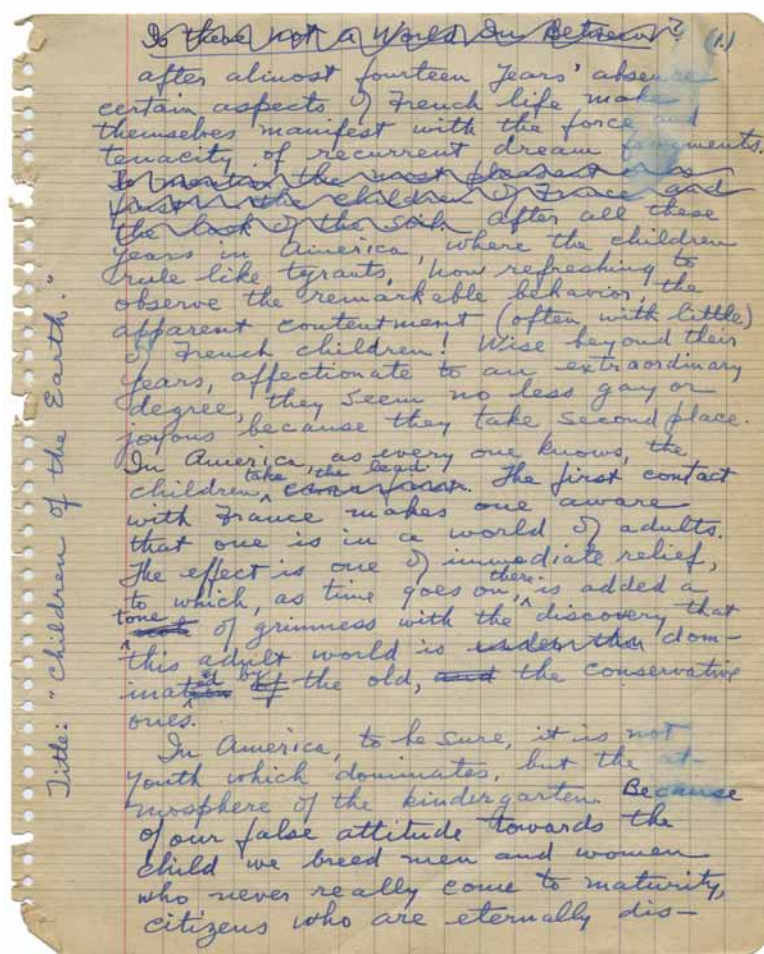 Is there not a World In Between? (1.)
after almost fourteen years' absence
certain aspects of French life make
themselves manifest with the force and
tenacity of recurrent dream fragments.
To mention the most pleasant
first — the children of France and
the look of the soil. after all these
years in America, where the children
rule like tyrants, how refreshing to
observe the remarkable behavior, the
apparent contentment (often with little)
of French children! Wise beyond their
years, affectionate to an extraordinary
degree, they seem no less gay or
joyous because they take second place.
In America, as every one knows, the
children take the lead. The first contact
with France makes one aware
that one is in a world of adults.
The effect is one of immediate relief,
to which, as time goes on, there is added a
tone of grimness with the discovery that
this adult world is under the dom-
inated by the old, and the conservative
ones.
In America, to be sure, it is not
youth which dominates, but the at-
mosphere of the kindergarten. Because
of our false attitude towards the
child we breed men and women
who never really come to maturity,
citizens who are eternally dis-
Title: "Children of the Earth."